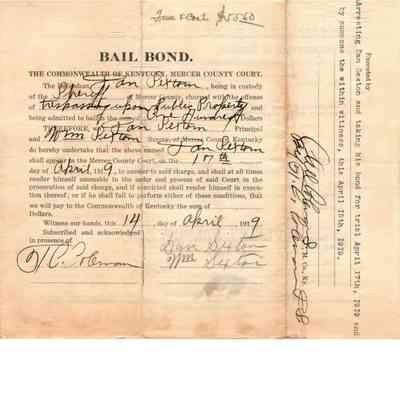 Fine & Cost $55.60
BAIL BOND.
THE COMMONWEALTH OF KENTUCKY, MERCER COUNTY COURT.
The defendant, Dan Sexton, being in custody
of the Sheriff of Mercer county, charged with the offense
of trespassing upon Public Property
and being admitted to bail in the sum of One Hundred Dollars
THEREFORE, we Dan Sexton Principal
and Wm Sexton Sureties of Mercer County Kentucky
do hereby undertake that the above named Dan Sexton
shall appear in the Mercer County Court, on the 17th
day of April 1919, to answer said charge, and shall at all times
render himself amenable to the order and process of said Court in the
prosecution of said charge, and if convicted shall render himself in execu-
tion thereof; or if he shall fail to perform either of these conditions, that
we will pay to the Commonwealth of Kentucky the sum of
Dollars.
Witness our hands, this 14 day of April 1919
Subscribed and acknowledged
in presence of
Dan Sexton
Wm Sexton
T C Coleman
Executed by
Arresting Dan Sexton and taking his bond for trial April 17th, 1919 and
by summons the within witness, this April 15th, 1919.